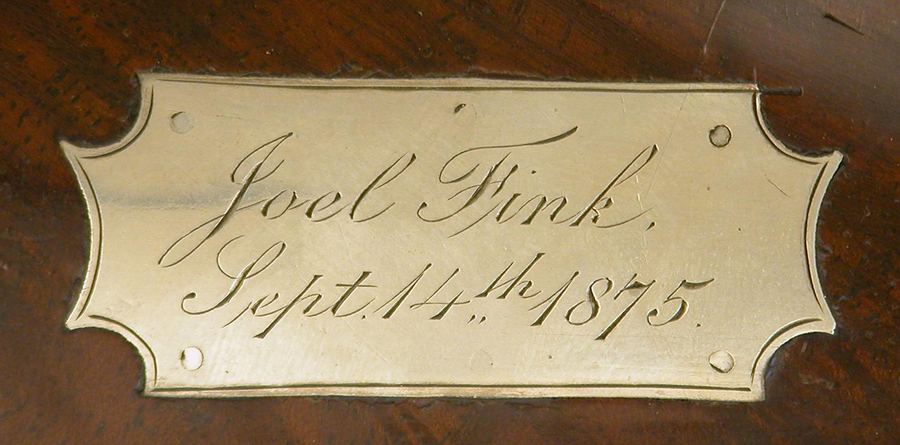 Joel Fink.
Sept. 14.th 1875.